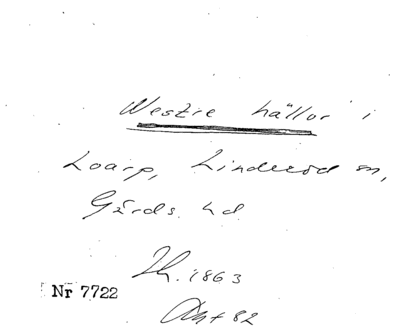 Westre hällor i
Loarp, Linderöd sn,
Gärds hd
1863
Nr 7722
82